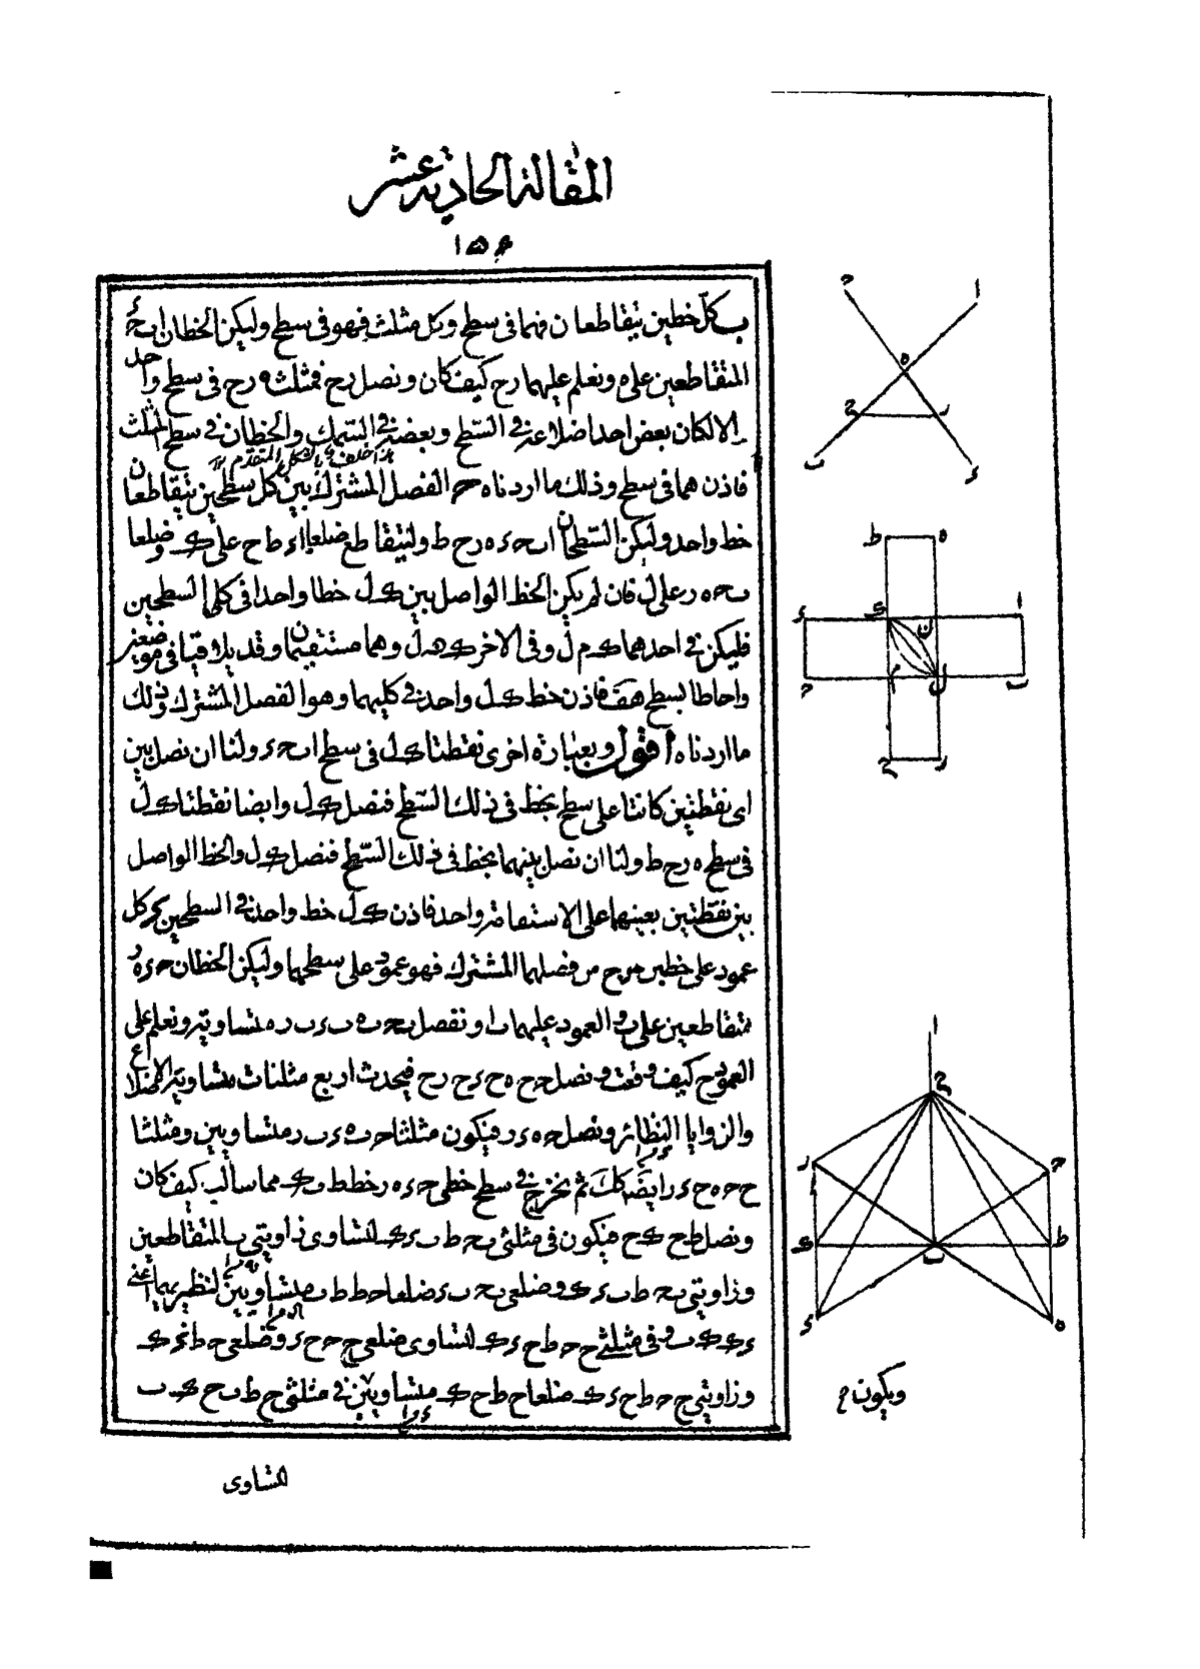 المقالة الحادية عشر
١٥٦
ب كل خطين يتقاطعان فهما فى سطح وكل مثلث فهو فى سطح وليكن الخطان اب حء
المتقاطعين على ه ونعلم عليهما رح كيف كان ونصل رح فمثلث ه رح فى سطح واحد
والا لكان بعض احد اضلاعه فى السطح وبعضه فى السمك والخطان فى سطح المثلث
هذا خلف بالشكل المتقدم
فاذن هما فى سطح وذلك ما اردناه ح الفصل المشترك بين كل سطحين يتقاطعان
خط واحد وليكن السطحان اب حء ه رح ط وليتقاطع ضلعا اء ط ح على ك وضلعا
ب ح ه ر على ل فان لم يكن الخط الواصل بين ك ل خطا واحدا فى كلى السطحين
فليكن فى احدهما ك م ل وفى الاخر ك ن ل وهما مستقيمان وقد يلاقيا فى موضعين
واحاطا بسطح هف فاذن خط ك ل واحد فى كليهما وهو الفصل المشترك وذلك
ما اردناه اقول وبعبارة اخرى نقطتا ك ل فى سطح اب حء ولنا ان نصل بين
اى نقطتين كانتا على سطح بخط فى ذلك السطح فنصل ك ل وايضا نقطتا ك ل
فى سطح ه رح ط ولنا ان نصل بينهما بخط فى ذلك السطح فنصل ك ل والخط الواصل
بين نقطتين بعينهما على الاستقامة واحد فاذن ك ل خط واحد فى السطحين كل
عمود على خطين خرج من فصلهما المشترك فهو عمود على سطحهما وليكن الخطان حء ه ر
متقاطعين على ب والعمود عليهما ب ا ونفصل ب ح ب ء ب ر ب ه متساوية ونعلم على
العمود ح كيف وقعت ونصل ح ح ه ح ء ح ر ح فيحدث اربع مثلثات متساوية الاضلاع
والزوايا النظائر ونصل ح ه ء ر فيكون مثلثا ح ب ه ء ب ر متساويين ومثلثا
ح ح ه ح ء ر ايضا كك ثم نخرج فى سطح خطى حء ه ر خط ط ب ك مماسا لب كيف كان
ونصل ط ح ك ح فيكون فى مثلثى ب ح ط ب ء ك لتساوى زاويتى ب المتقاطعين
وزاويتى ب ح ط ب ء ك وضلعى ب ح ب ء ضلعا ح ط ط ب متساويين لنظيريهما اعنى
ء ك ك ب وفى مثلثى ح ح ط ح ء ك لتساوى ضلعى ح ح ح ء وضلعى ح ط ء ك
وزاويتى ح ح ط ح ء ك ضلعا ح ط ح ك متساويين فى مثلثى ح ط ب ح ك ب
لتساوى
ويكون ح